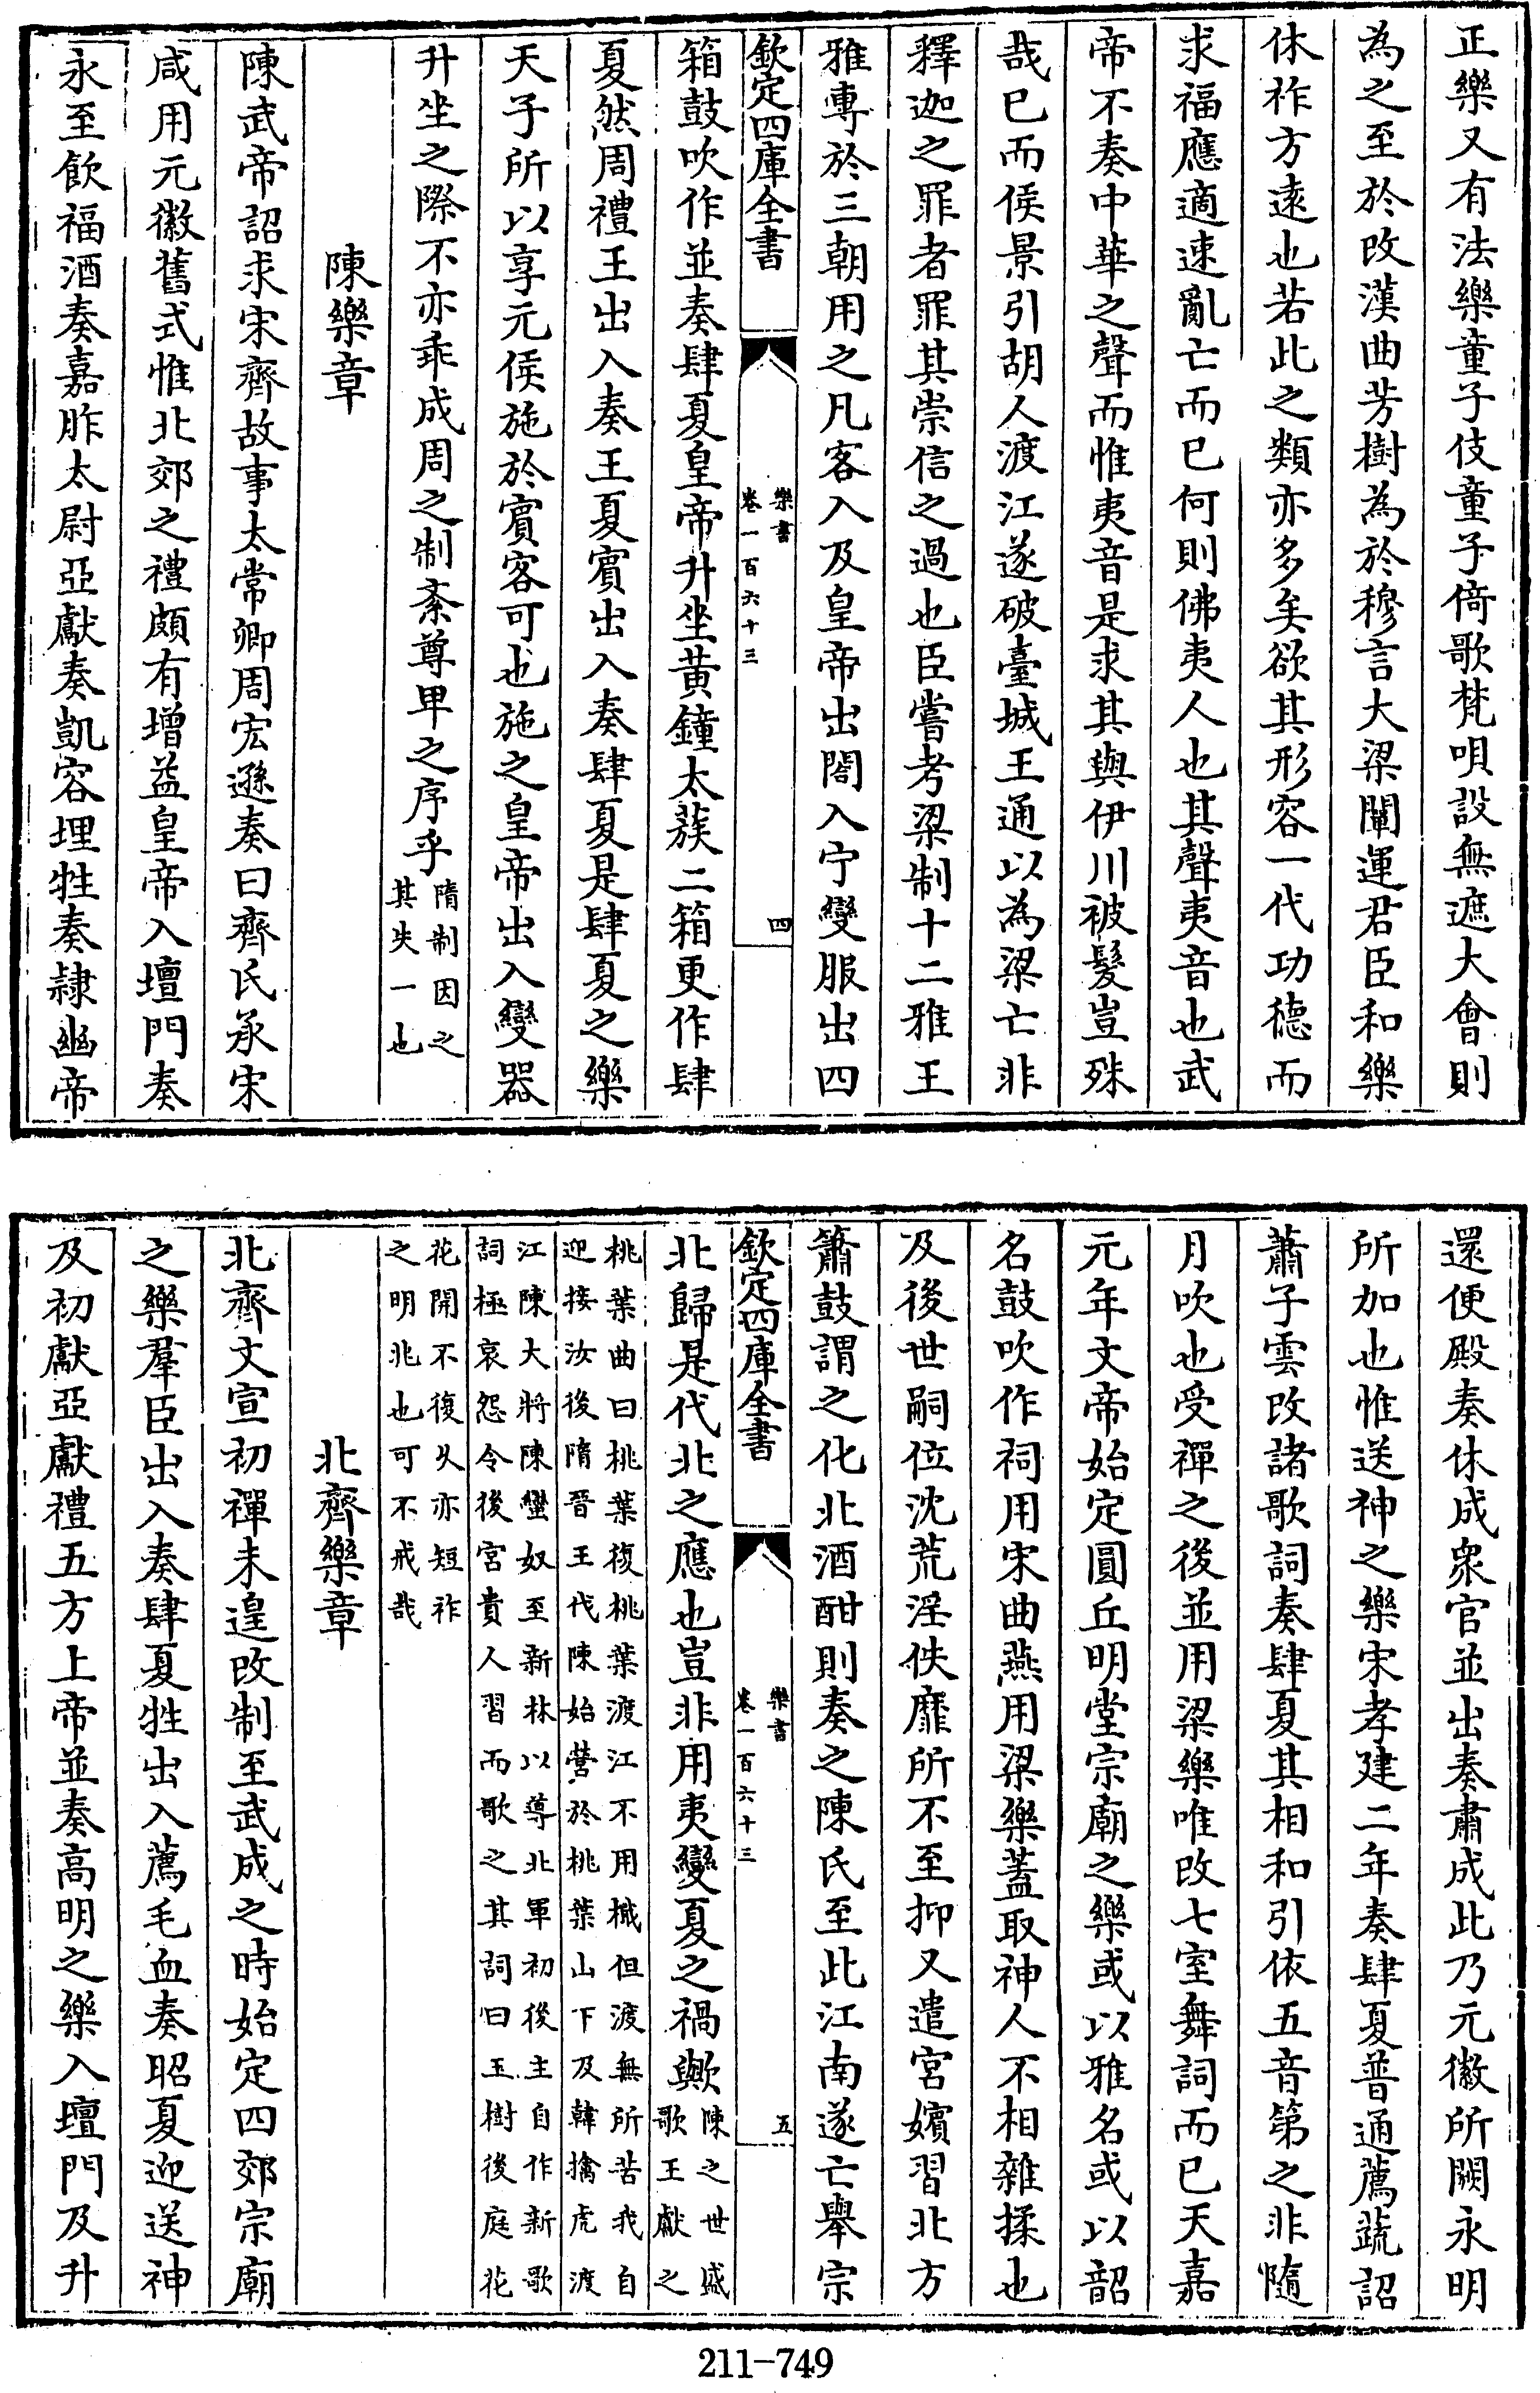 正樂又有法樂童子伎童子倚歌梵唄設無遮大會則
為之至於改漢曲芳樹為於穆言大梁闡運君臣和樂
休祚方遠也若此之類亦多矣欲其形容一代功德而
求福應適速亂亡而已何則佛夷人也其聲夷音也武
帝不奏中華之聲而惟夷音是求其與伊川被髮豈殊
哉已而侯景引胡人渡江遂破臺城王通以為梁亡非
釋迦之罪者罪其崇信之過也臣嘗考梁制十二雅王
雅專於三朝用之凡客入及皇帝出閤入宁變服出四
欽定四庫全書
樂書
卷一百六十三
四
箱鼓吹作並奏肆夏皇帝升坐黃鐘太蔟二箱更作肆
夏然周禮王出入奏王夏賓出入奏肆夏是肆夏之樂
天子所以享元侯施於賓客可也施之皇帝出入變器
升坐之際不亦乖成周之制紊尊卑之序乎
隋制因之
其失一也
陳樂章
陳武帝詔求宋齊故事太常卿周宏遜奏曰齊氏承宋
咸用元徽舊式惟北郊之禮頗有增益皇帝入壇門奏
永至飲福酒奏嘉胙太尉亞獻奏凱容埋牲奏隸幽帝
還便殿奏休成衆官並出奏肅成此乃元徽所闕永明
所加也惟送神之樂宋孝建二年奏肆夏普通薦蔬詔
蕭子雲改諸歌詞奏肆夏其相和引依五音第之非隨
月吹也受禪之後並用梁樂唯改七室舞詞而已天嘉
元年文帝始定圓丘明堂宗廟之樂或以雅名或以韶
名鼓吹作祠用宋曲燕用梁樂蓋取神人不相雜揉也
及後世嗣位沈荒淫佚靡所不至抑又遣宮嬪習北方
簫鼓謂之化北酒酣則奏之陳氏至此江南遂亡舉宗
欽定四庫全書
樂書
卷一百六十三
五
北歸是代北之應也豈非用夷變夏之禍歟
陳之世盛
歌王獻之
桃葉曲曰桃葉復桃葉渡江不用檝但渡無所苦我自
迎接汝後隋晉王伐陳始營於桃葉山下及韓擒虎渡
江陳大將陳蠻奴至新林以導北軍初後主自作新歌
詞極哀怨令後宮貴人習而歌之其詞曰玉樹後庭花
花開不復久亦短祚
之明兆也可不戒哉
北齊樂章
北齊文宣初禪未遑改制至武成之時始定四郊宗廟
之樂羣臣出入奏肆夏牲出入薦毛血奏昭夏迎送神
及初獻亞獻禮五方上帝並奏高明之樂入壇門及升
211-749